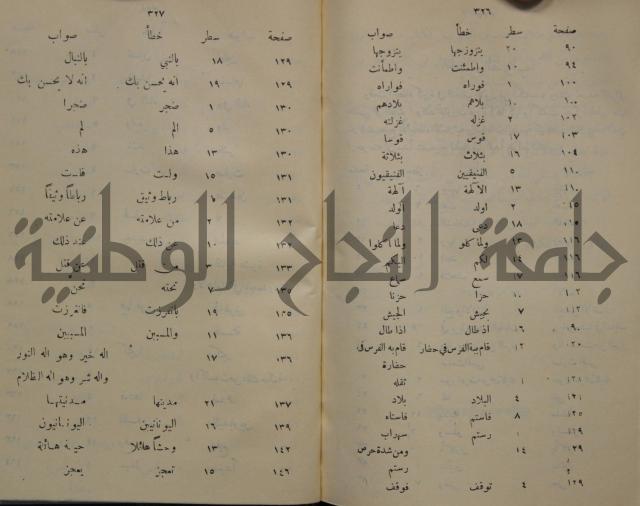 ٣٢٦
صفحة سطر خطأ صواب
٩٠ ٢٠ يتزوزجها يتزوجها
٩٤ ١٠ واطمئنت واطمأنت
١٠٠ ١ فوراه فواراه
١٠٠ ١٠ بلاهم بلادهم
١٠٢ ٢ غزله غزلته
١٠٣ ٧ قوس قوسا
١٠٤ ١٦ بثلاث بثلاثة
١١٠ ٥ الفنيقيين الفنيقيون
١١٠ ١٣ الآلهة آلهة
٢ اولد أولد
١٨
١٣ ولما كلو ولما أكلوا
١١٦ ١٤ لكم اليكم
١١٦ ١٧ سمع سماع
١٠ حزا حزنا
٧ بجيش الجيش
٦ اذ طال اذا طال
١٢ قام ببة الفرس في حضار قام به الفرس في
حضارة
١ ثقله
١٢١ ٤ البلاد بلاد
٨ فاستم فاستاه
١ رستم سهراب
١٤ ومن شدة حرص
رستم
١٢٩ ٤ توقف فوقف
٣٢٧
صفحة سطر خطأ صواب
١٢٩ ١٨ بالنبي بالنبال
١٢٩ ١٩ انه يحسن بك انه لا يحسن بك
١٣٠ ١ ضجر ضجرا
١٣٠ ٥ الم لم
١٣٠ ١٣ هذا هذه
١٣١ ١٥ ولست فلست
١٣١ رباط وثيق رباطاً وثيقاً
١٣٢ ٢ من علامته عن علامته
١٠ عن ذلك عند ذلك
١٣٣ ٣ قتل قتل
١٣٥ ٧ تحته
١٣٥ ١٩ فانغرزت
١٣٦ ١١ والمسيين المسيبين
١٣٦ ١٧ اله خير وهو اله النور
واله شر وهو اله الظلام
١٣٧ ٢١ مدينتها مدنيتها
١٣٩ ١٦ اليونانيين اليونانيون
١٤٢ ١٣ وحشاً هائلا حية هائلة
١٤٦ ١٥ تعجز يعجز
جامعة النجاح الوطنية